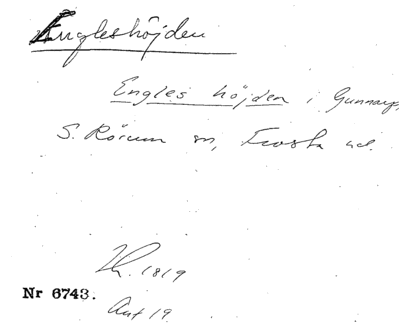 Engleshöjden
Engles höjden i Gunnarp,
S. Rörum sn, Frosta hd.
Th. 1819
Nr 6743.
Ant 19